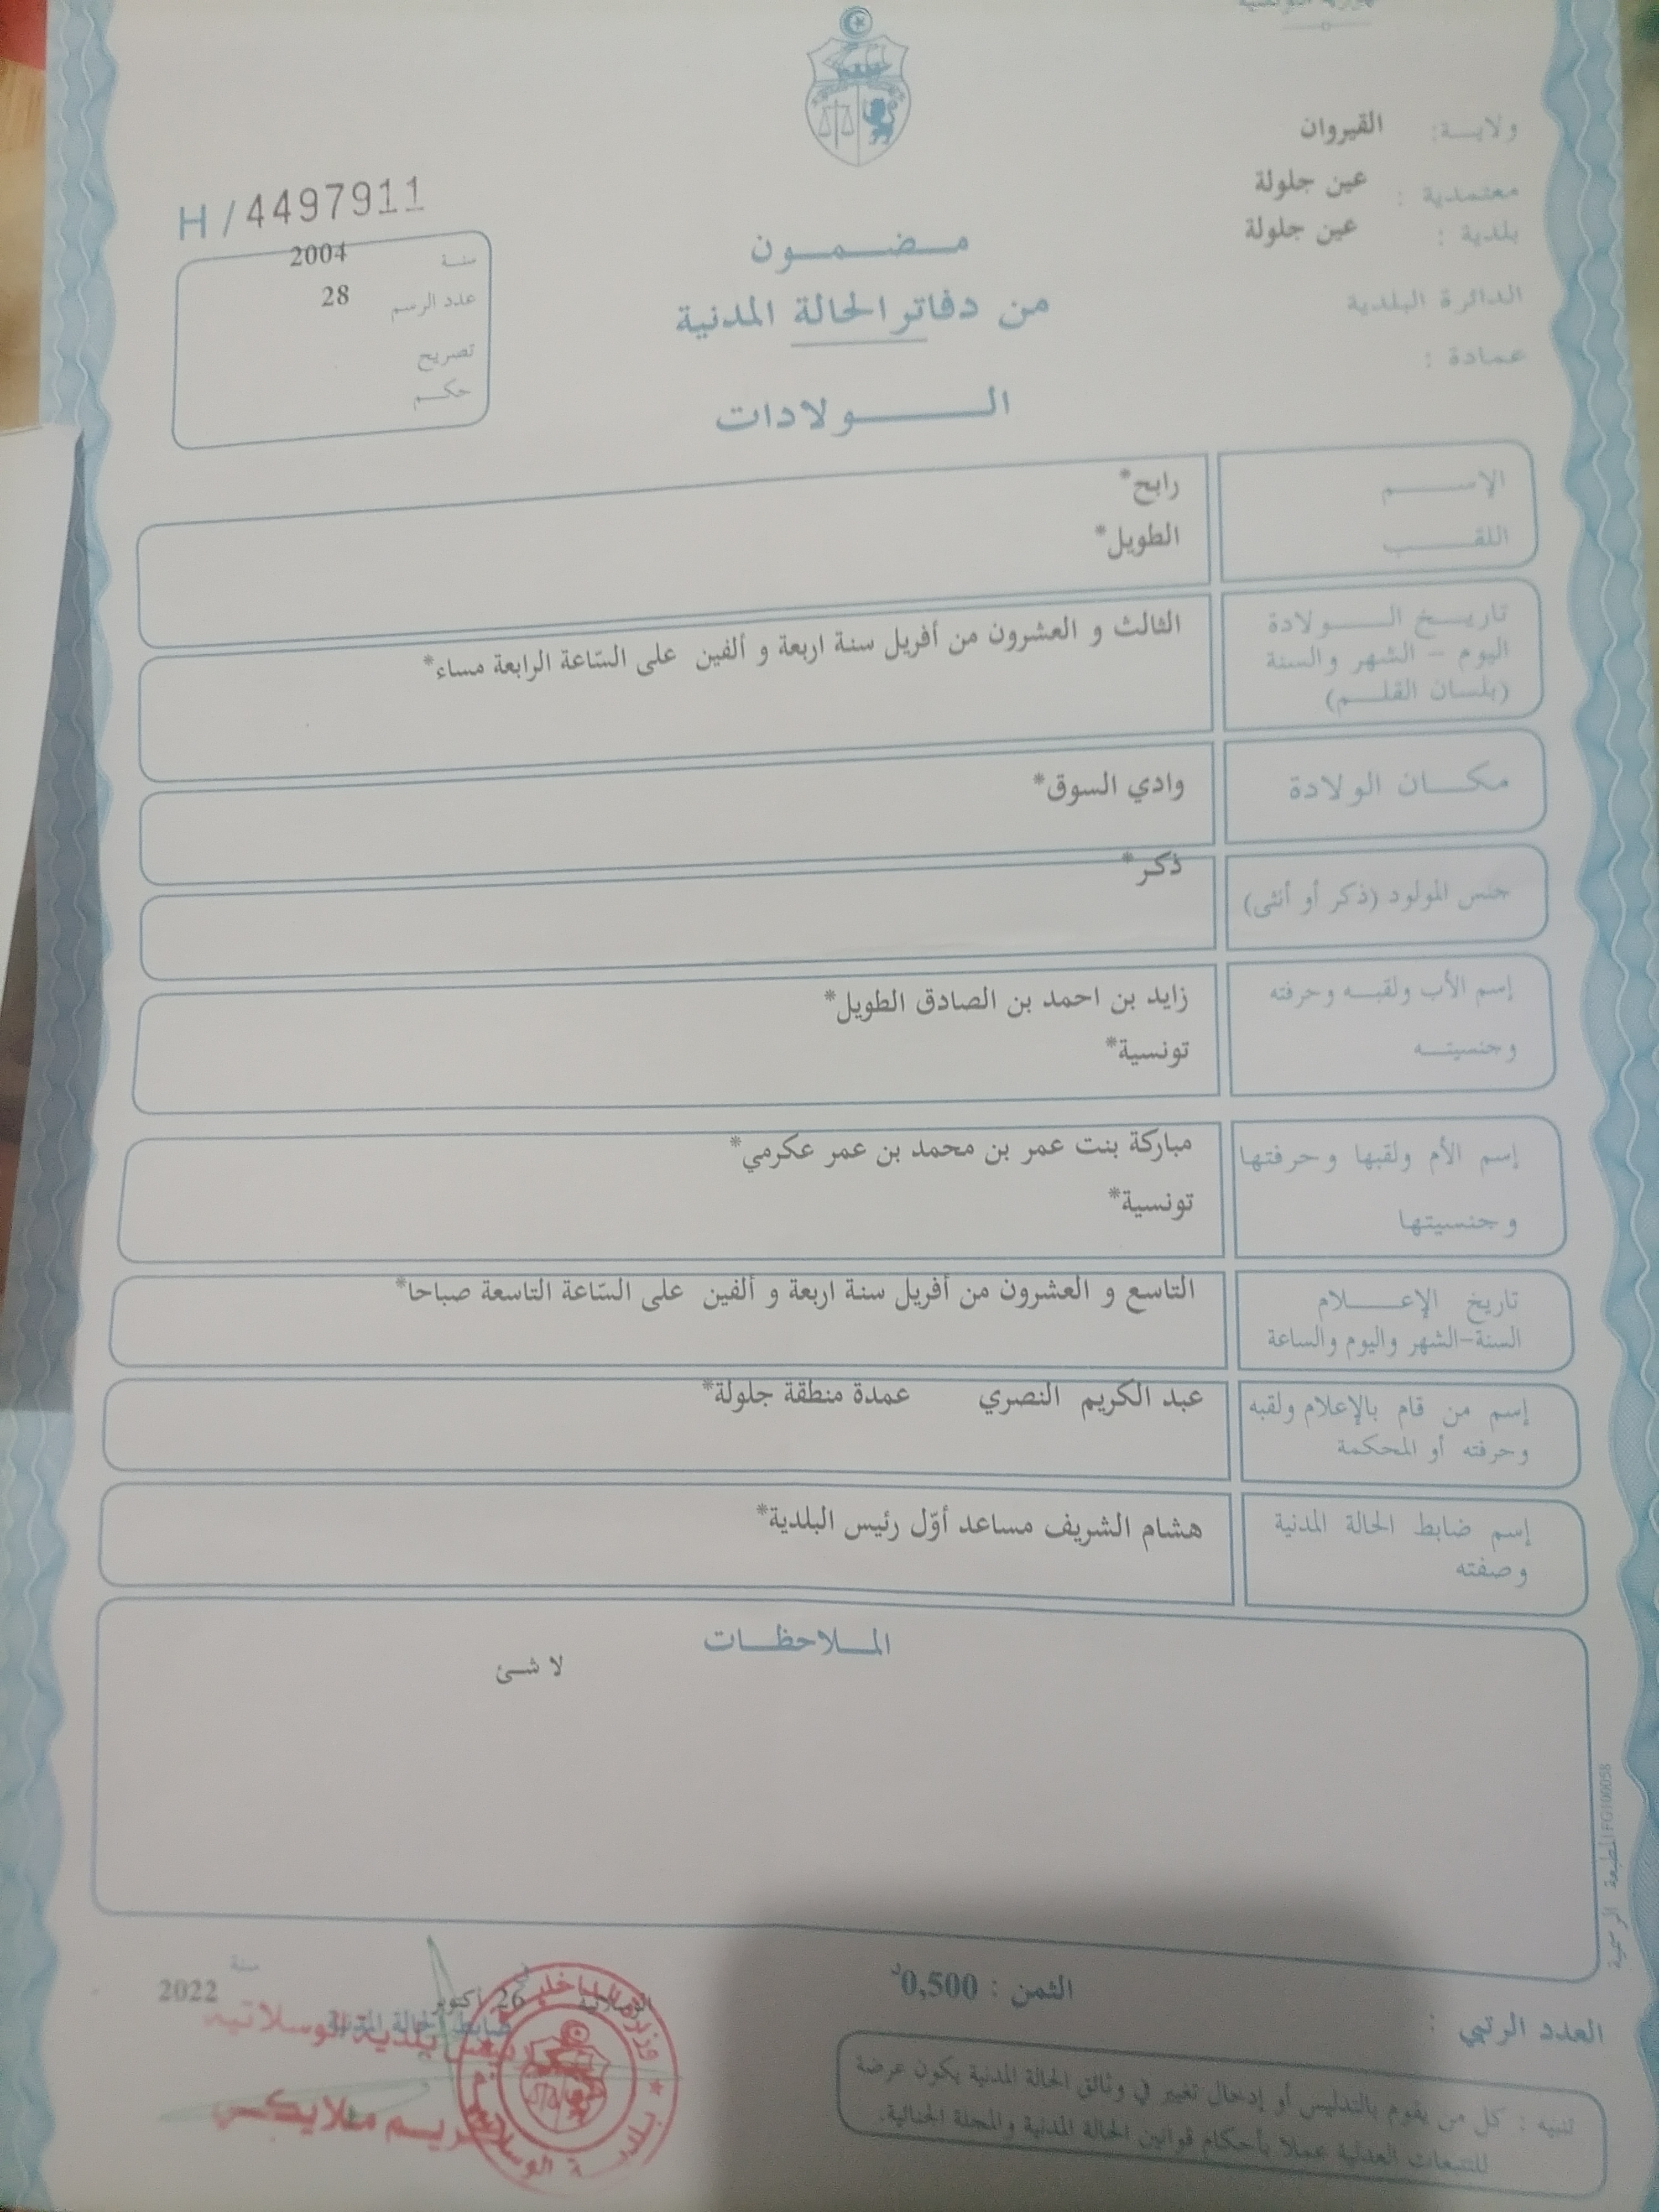 ولايــة: القيروان
معتمدية : عين جلولة
بلدية : عين جلولة
الدائرة البلدية
عمادة :
H / 4497911
سنة 2004
عدد الرسم 28
تصريح
حكم
مضمون
من دفاتر الحالة المدنية
الولادات
الإسم رابح*
اللقب الطويل*
تاريخ الولادة
اليوم - الشهر والسنة
(بلسان القلم)
الثالث و العشرون من أفريل سنة اربعة و ألفين على السّاعة الرابعة مساء*
مكان الولادة وادي السوق*
جنس المولود (ذكر أو أنثى) ذكر*
إسم الأب ولقبه وحرفته زايد بن احمد بن الصادق الطويل*
وجنسيته تونسية*
إسم الأم ولقبها وحرفتها مباركة بنت عمر بن محمد بن عمر عكرمي*
وجنسيتها تونسية*
تاريخ الإعلام التاسع و العشرون من أفريل سنة اربعة و ألفين على السّاعة التاسعة صباحا*
السنة-الشهر واليوم والساعة
إسم من قام بالإعلام ولقبه عبد الكريم النصري عمدة منطقة جلولة*
وحرفته أو المحكمة
إسم ضابط الحالة المدنية هشام الشريف مساعد أوّل رئيس البلدية*
وصفته
الملاحظات
لا شئ
المطبعة الرسمية FG100058
الثمن : 0,500د
العدد الرتبي :
تنبيه : كل من يقوم بالتدليس أو إدخال تغيير في وثائق الحالة المدنية يكون عرضة
للتتبعات العدلية عملا بأحكام قوانين الحالة المدنية والمجلة الجنائية.
الوسلاتية في 26 أكتوبر سنة 2022
ضابط الحالة المدنية
بلدية الوسلاتية